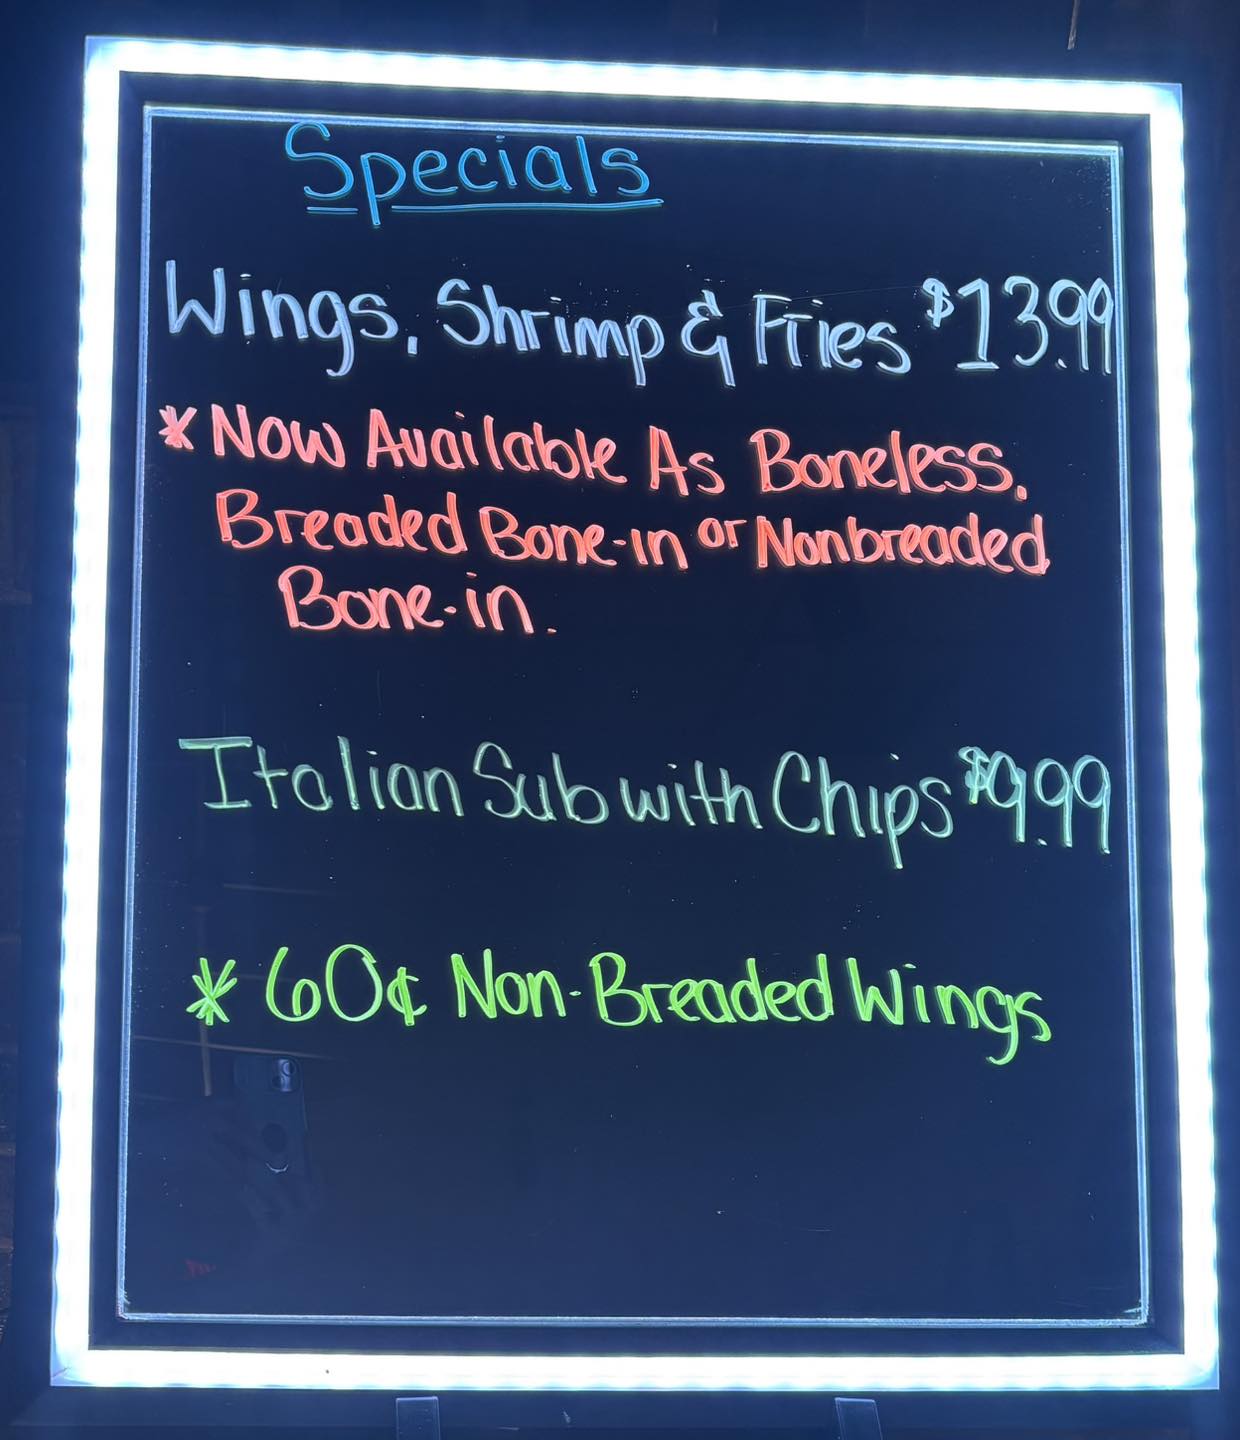 Specials
Wings, Shrimp & Fries $13.99
* Now Available As Boneless,
Breaded Bone-in or Nonbreaded
Bone-in.
Italian Sub with Chips $9.99
* 60¢ Non-Breaded Wings